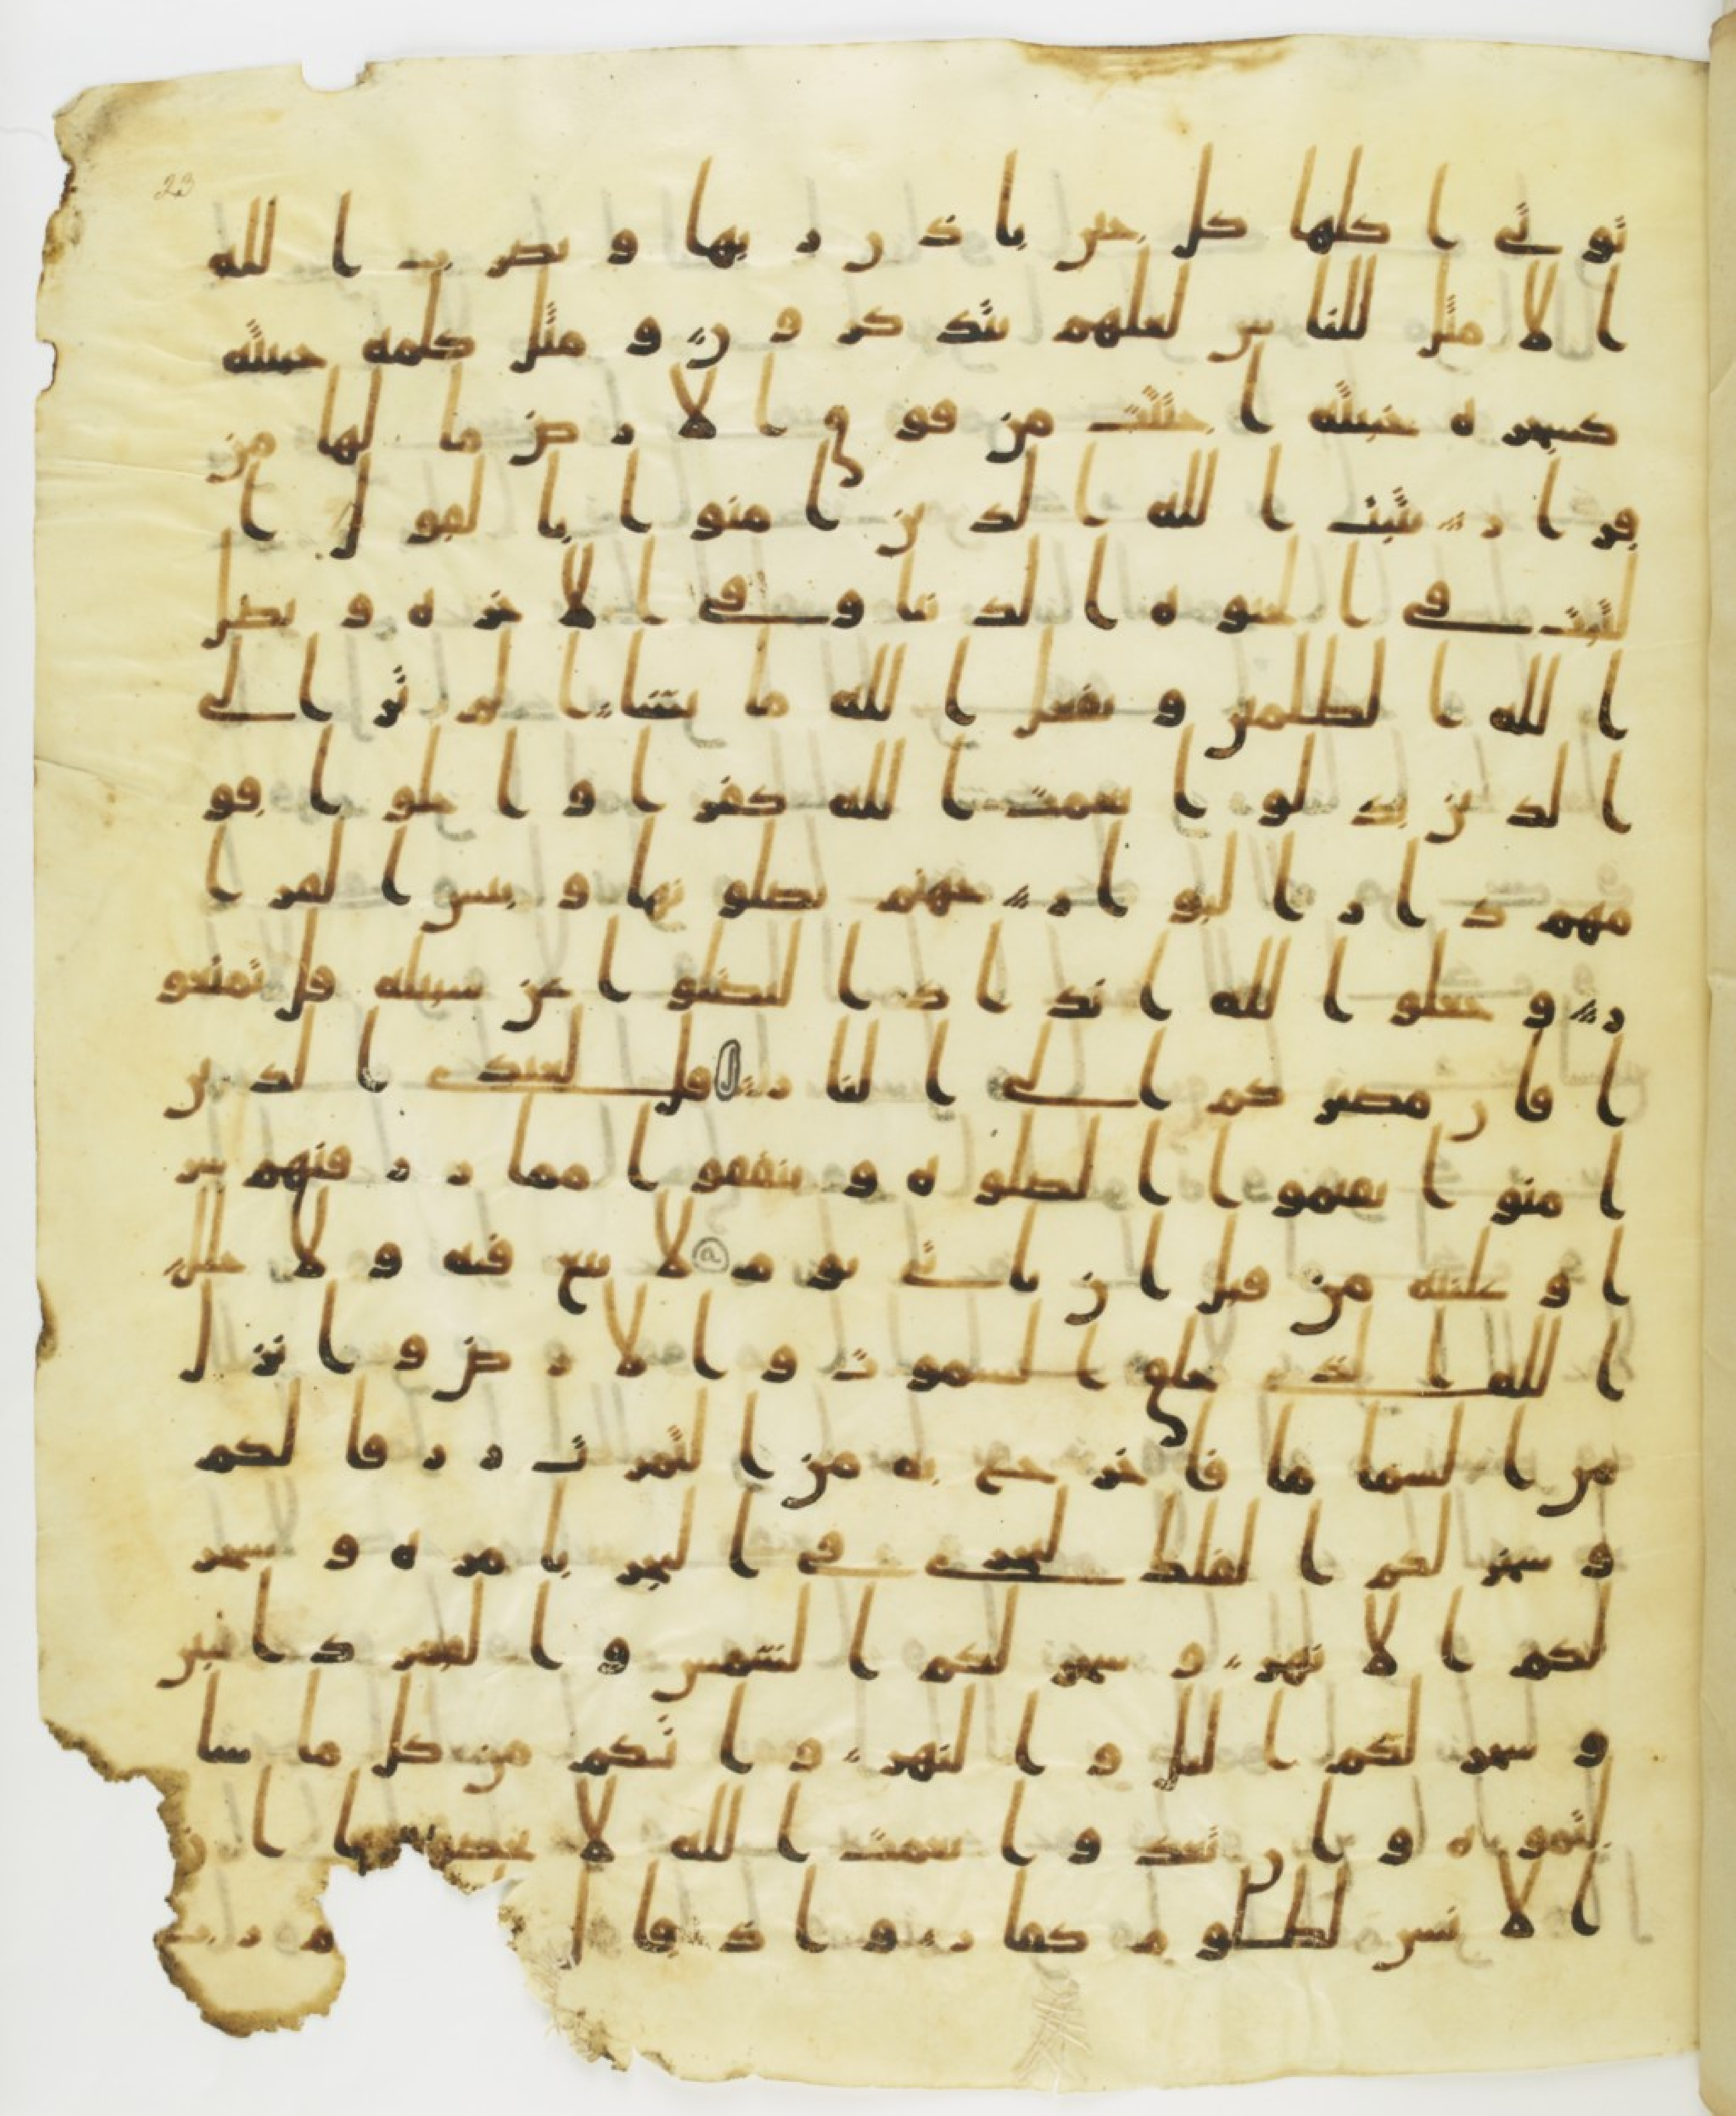 توتي اكلها كل حين باذن ربها ويضرب الله
الامثل للناس لعلهم يتذكرون ومثل كلمه خبيثه
كشجره خبيثه اجتثت من فوق الارض ما لها من
قرار يثبت الله الذين امنوا بالقول ا
لثبت في الحيوه الدنيا وفي الاخره ويضل
الله الظلمين ويفعل الله ما يشا الم تر الي
الذين بدلوا نعمت الله كفرا واحلوا قو
مهم دار البوار جهنم يصلونها وبيس القرا
ر وجعلوا لله اندادا ليضلوا عن سبيله قل تمتعو
ا فان مصيركم الي النار قل لعبدي الذين
امنوا يقيموا الصلوه وينفقوا مما رزقنهم سر
ا وعلنيه من قبل ان ياتي يوم لا بيع فيه ولا خلل
الله الذي خلق السموت والارض وانزل
من السما ما فاخرج به من الثمرت رزقا لكم
وسخر لكم الفلك لتجري في البحر بامره وسخر
لكم الانهر وسخر لكم الشمس والقمر داىبين
وسخر لكم اليل والنهر واتىكم من كل ما سا
لتموه وان تعدوا نعمت الله لا تحصوها ان
الانسن لظلوم كفار واذ قال م رب